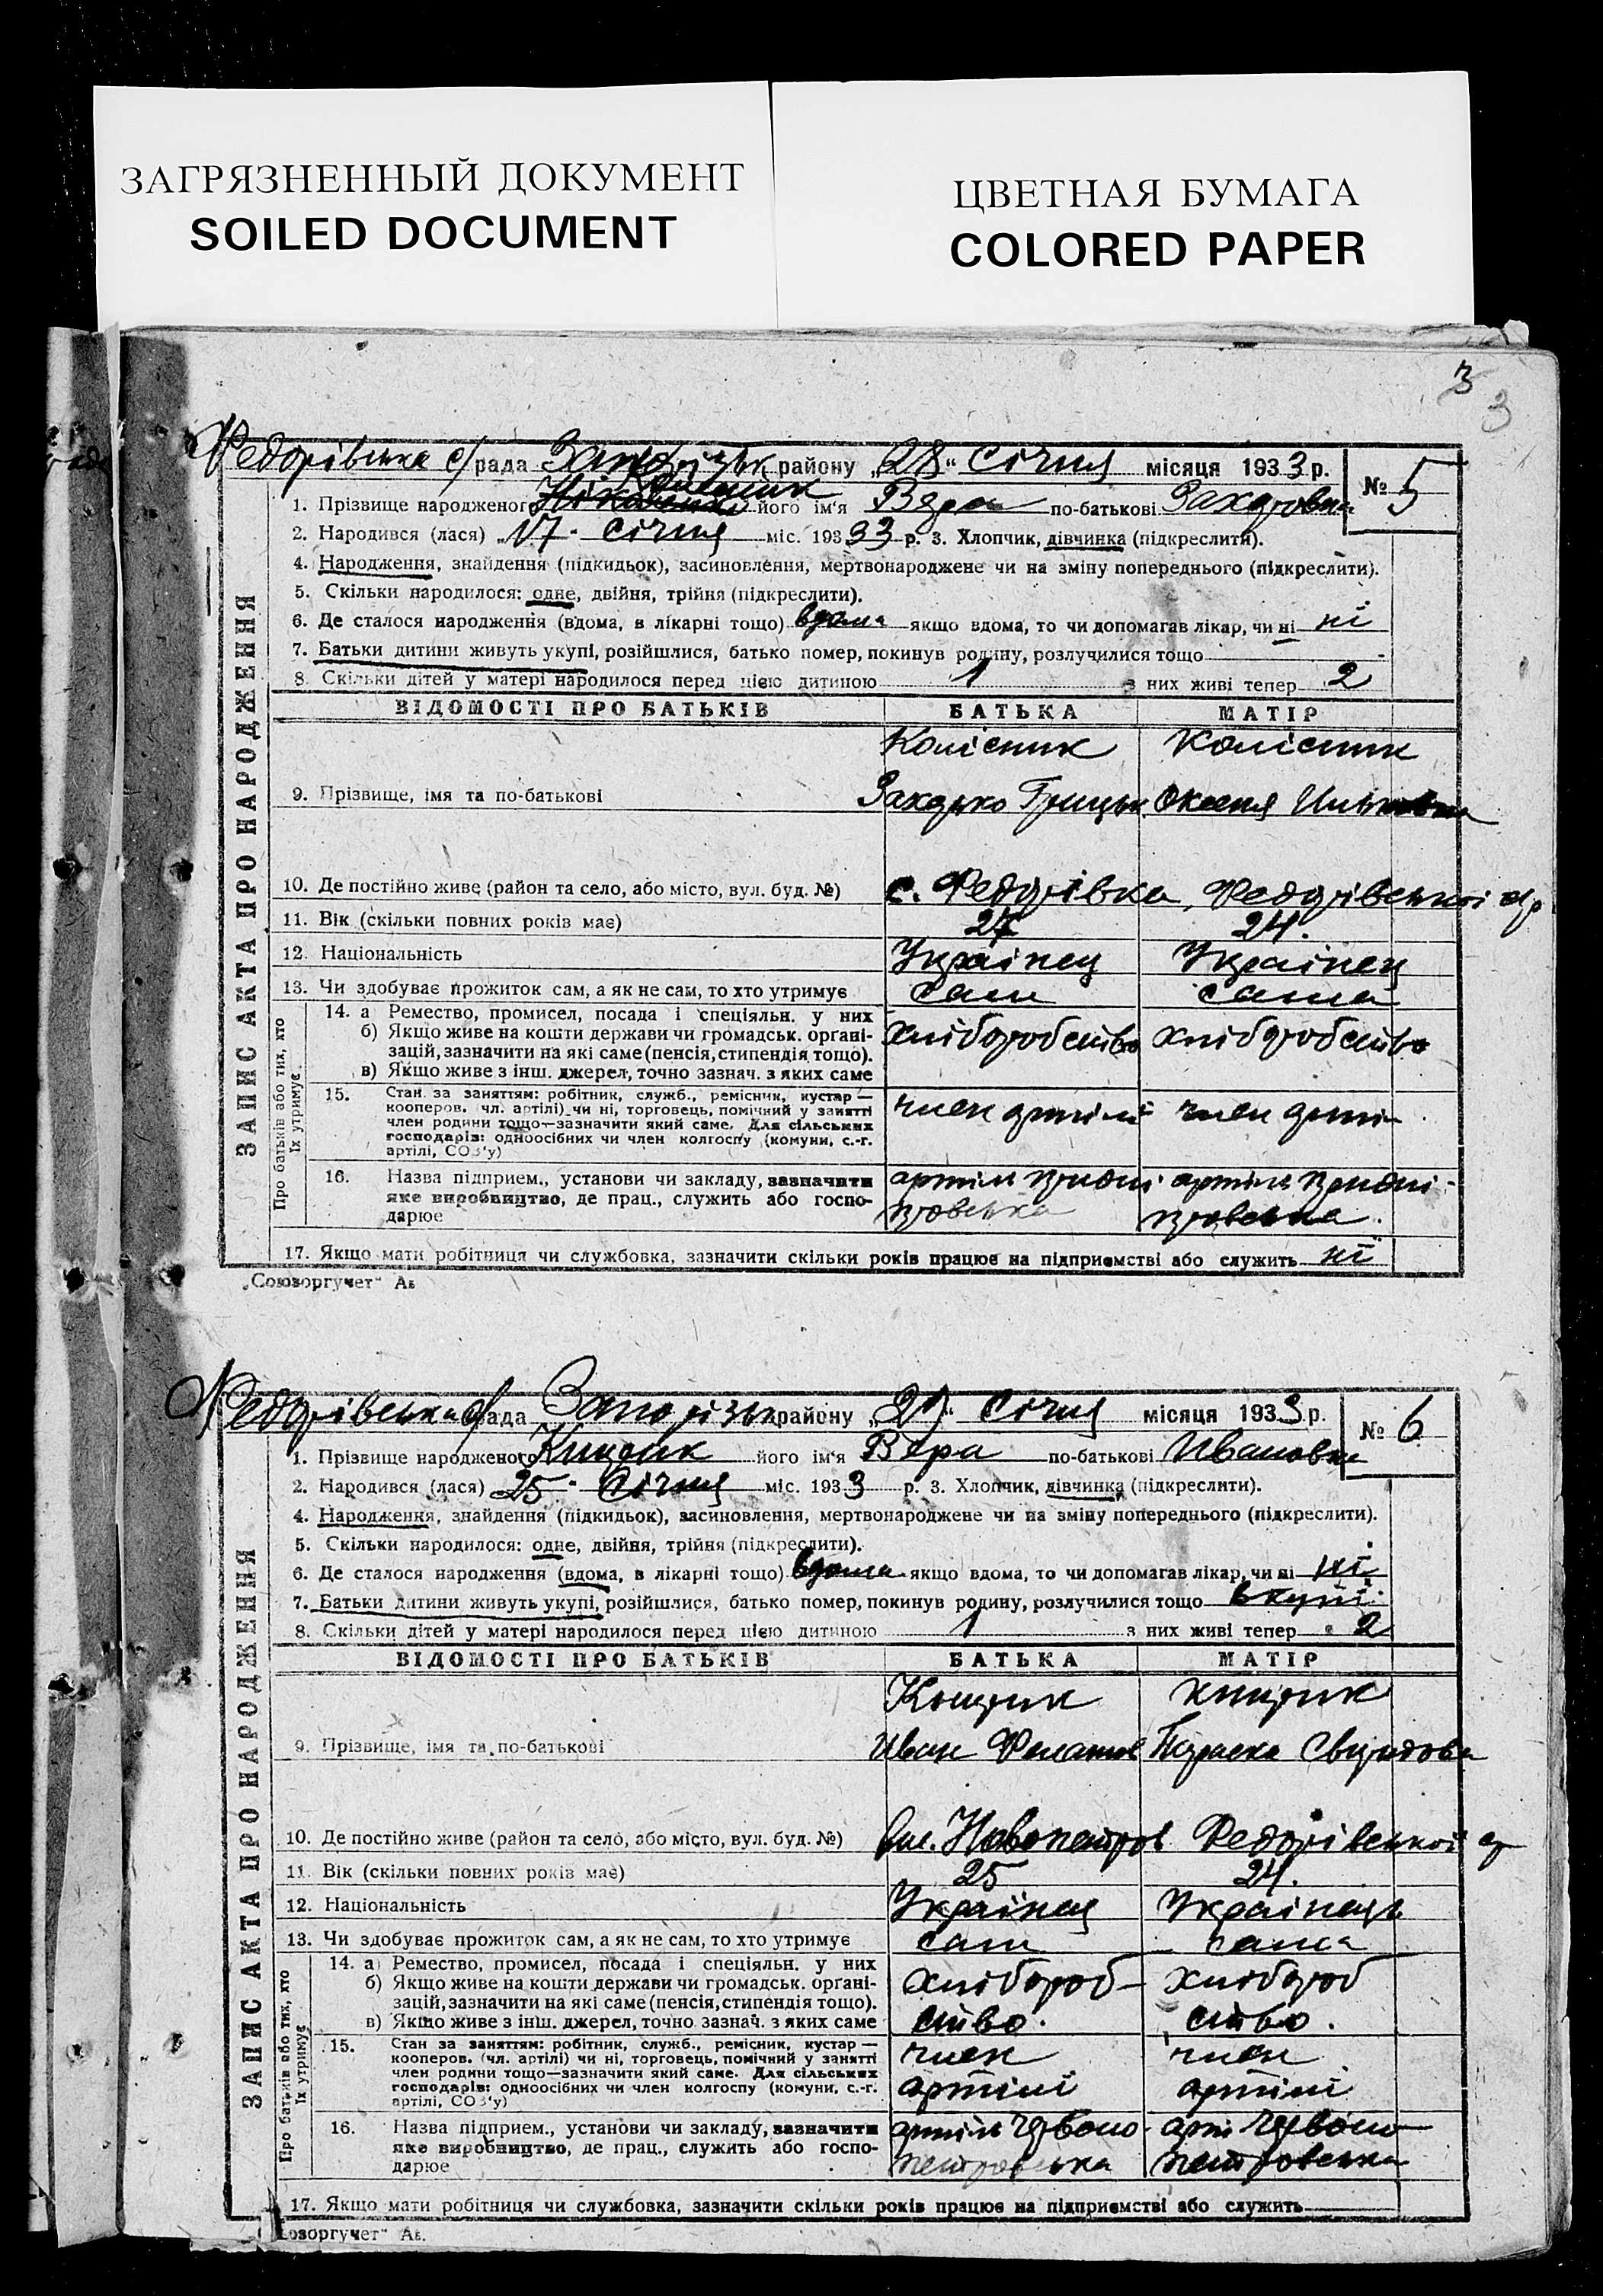 ЗАГРЯЗНЕННЫЙ ДОКУМЕНТ
SOILED DOCUMENT
ЦВЕТНАЯ БУМАГА
COLORED PAPER
3
3
Федорівська с/рада Запорізьк району „28“ січня місяця 1933 р.
№ 5
1. Прізвище народженого його ім'я Вера по-батькові Захаровна
2. Народився (лася) „17“ січня міс. 1933 р. 3. Хлопчик, дівчинка (підкреслити).
4. Народження, знайдення (підкидьок), засиновлення, мертвонароджене чи на зміну попереднього (підкреслити).
5. Скільки народилося: одне, двійня, трійня (підкреслити).
6. Де сталося народження (вдома, в лікарні тощо) вдома якщо вдома, то чи допомагав лікар, чи ні ні
7. Батьки дитини живуть укупі, розійшлися, батько помер, покинув родину, розлучилися тощо
8. Скільки дітей у матері народилося перед цією дитиною 1 з них живі тепер 2
ЗАПИС АКТА ПРО НАРОДЖЕННЯ
ВІДОМОСТІ ПРО БАТЬКІВ БАТЬКА МАТІР
Колісник Колісник
9. Прізвище, імя та по-батькові Захарко Грицьк Оксеня
10. Де постійно живе (район та село, або місто, вул. буд. №) с. Федорівка, Федорівської с/р
11. Вік (скільки повних років має) 27 24.
12. Національність Українец Українец
13. Чи здобуває прожиток сам, а як не сам, то хто утримує сам сама
Про батьків або тих, хто їх утримує
14. а Ремество, промисел, посада і спеціяльн. у них
б) Якщо живе на кошти держави чи громадськ. органі-
зацій, зазначити на які саме (пенсія, стипендія тощо).
в) Якщо живе з інш. джерел, точно зазнач. з яких саме
хліборобство хліборобство
15. Стан за заняттям: робітник, служб., ремісник, кустар —
кооперов. (чл. артілі) чи ні, торговець, помічний у занятті
член родини тощо—зазначити який саме. Для сільських
господарів: одноосібних чи член колгоспу (комуни, с.-г.
артілі, СОЗ'у)
член артілі член арті
16. Назва підприєм., установи чи закладу, зазначити
яке виробництво, де прац., служить або госпо-
дарює
артіль артіль
17. Якщо мати робітниця чи службовка, зазначити скільки років працює на підприємстві або служить ні
„Союзоргучет“ Ав
Федорівська с/рада Запорізьк району „29“ січня місяця 1933 р.
№ 6
1. Прізвище народженого Кицрик його ім'я Вера по-батькові Ивановна
2. Народився (лася) 25 Січня міс. 1933 р. 3. Хлопчик, дівчинка (підкреслити).
4. Народження, знайдення (підкидьок), засиновлення, мертвонароджене чи на зміну попереднього (підкреслити).
5. Скільки народилося: одне, двійня, трійня (підкреслити).
6. Де сталося народження (вдома, в лікарні тощо) вдома якщо вдома, то чи допомагав лікар, чи ні ні
7. Батьки дитини живуть укупі, розійшлися, батько помер, покинув родину, розлучилися тощо вкупі
8. Скільки дітей у матері народилося перед цією дитиною 1 з них живі тепер 2
ЗАПИС АКТА ПРО НАРОДЖЕННЯ
ВІДОМОСТІ ПРО БАТЬКІВ БАТЬКА МАТІР
Кицрик Кицрик
9. Прізвище, імя та по-батькові Иван Филатов Параска Свиридова
10. Де постійно живе (район та село, або місто, вул. буд. №) Новопетров Федорівської ср
11. Вік (скільки повних років має) 25 24.
12. Національність Українец Українець
13. Чи здобуває прожиток сам, а як не сам, то хто утримує сам сама
Про батьків або тих, хто їх утримує
14. а) Ремество, промисел, посада і спеціяльн. у них
б) Якщо живе на кошти держави чи громадськ. органі-
зацій, зазначити на які саме (пенсія, стипендія тощо).
в) Якщо живе з інш. джерел, точно зазнач. з яких саме
хлібороб- хлібороб
ство. ство.
15. Стан за заняттям: робітник, служб., ремісник, кустар —
кооперов. (чл. артілі) чи ні, торговець, помічний у занятті
член родини тощо—зазначити який саме. Для сільських
господарів: одноосібних чи член колгоспу (комуни, с.-г.
артілі, СОЗ'у)
член член
артілі артілі
16. Назва підприєм., установи чи закладу, зазначити
яке виробництво, де прац., служить або госпо-
дарює
артіль Червоно- арті Червоно
петровська петровська
17. Якщо мати робітниця чи службовка, зазначити скільки років працює на підприємстві або служить
оюзоргучет“ Ав.